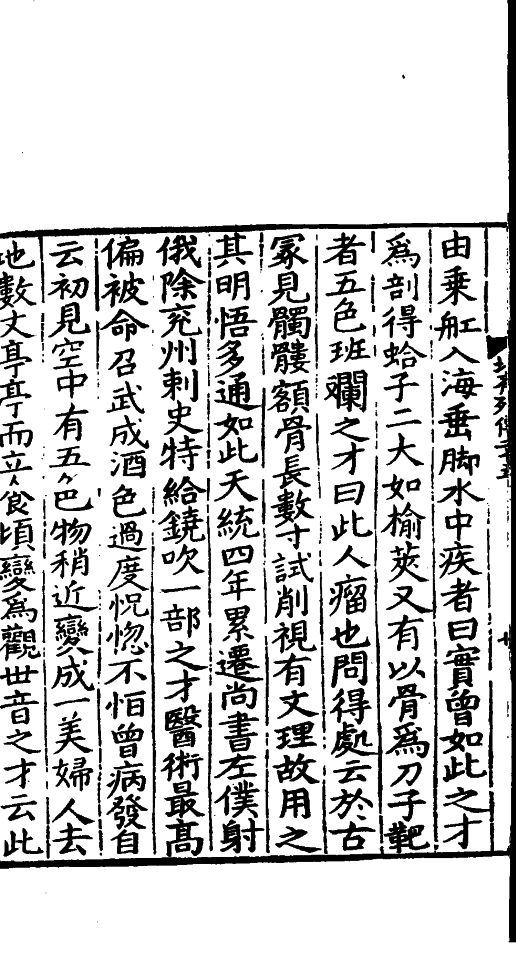 由乗舡入海垂脚水中疾者曰實曾如此之才
爲剖得蛤子二大如榆莢又有以骨爲刀子靶
者五色班斕之才曰此人瘤也問得處云於古
冢見髑髏額骨長數寸試削視有文理故用之
其明悟多通如此天統四年累遷尚書左僕射
俄除兖州刺史特給鐃吹一部之才醫術最髙
偏被命召武成酒色過度怳惚不怕曾病發自
云初見空中有五色物稍近變成一美婦人去
地數丈亭亭而立食頃變爲觀世音之才云此